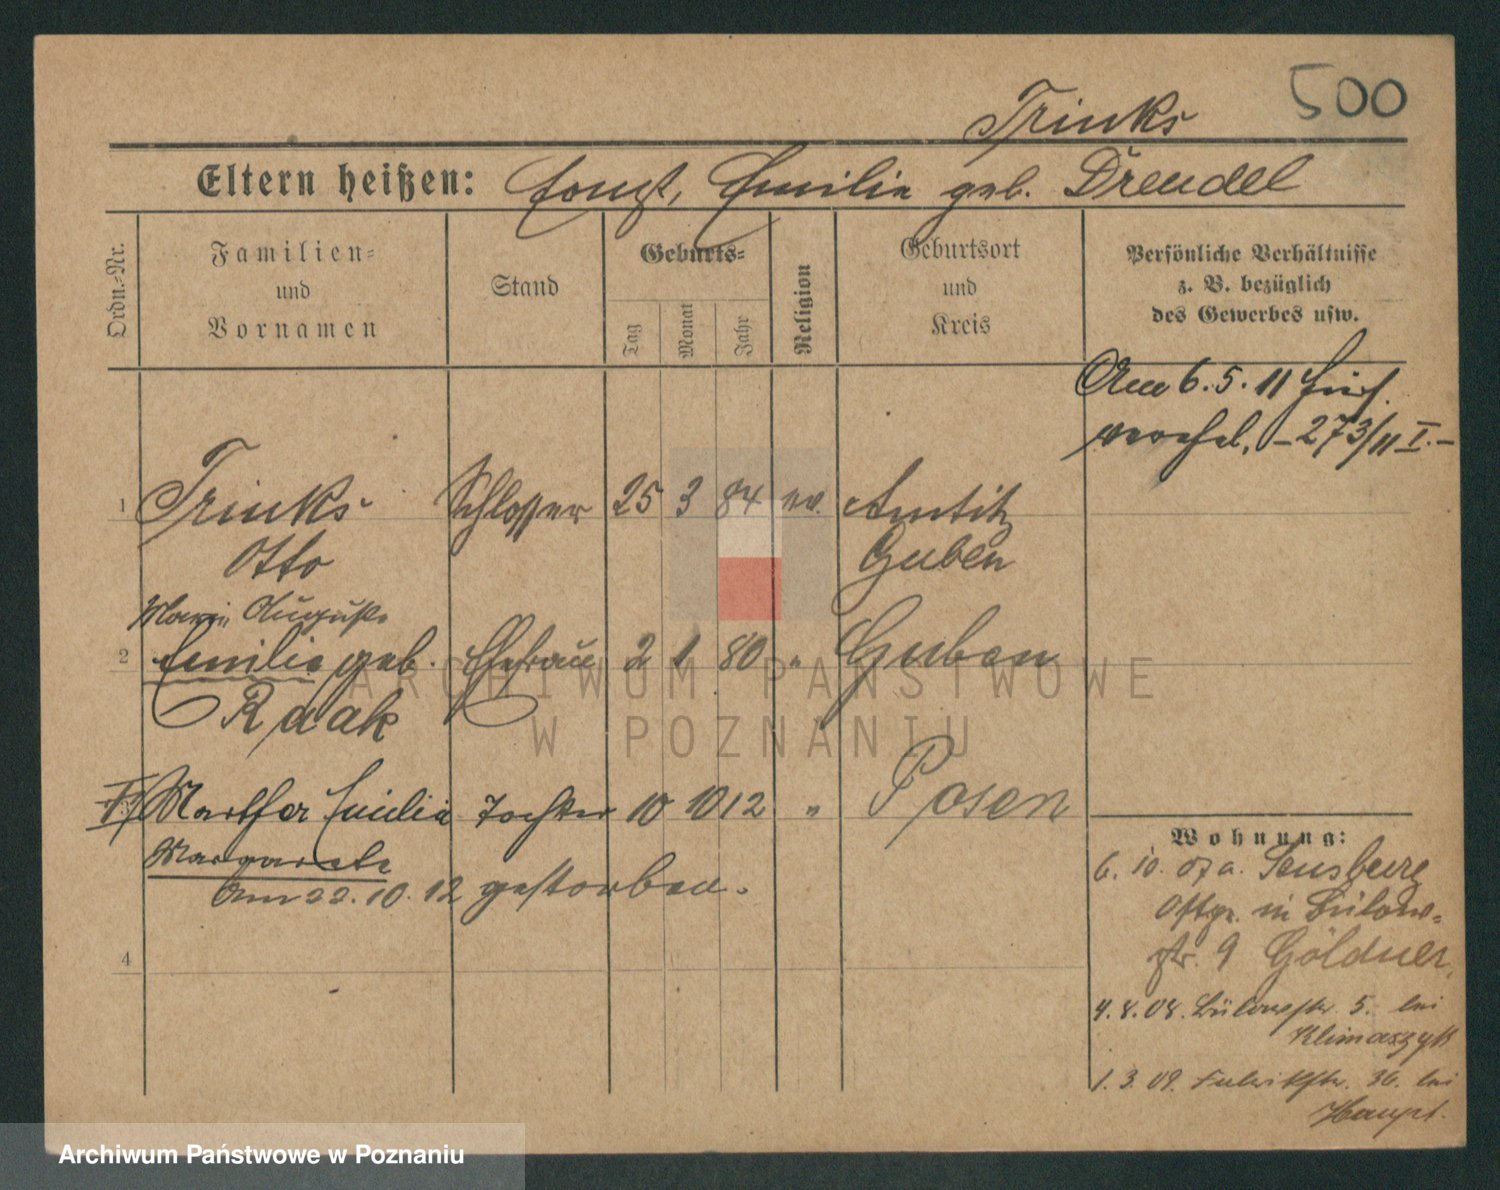 500
Trinks
Eltern heißen: Ernst, Emilie geb. Drendel
Ordn.-Nr.
Familien- und Vornamen
Stand
Geburts-
Tag
Monat
Jahr
Religion
Geburtsort und Kreis
Persönliche Verhältnisse
z. B. bezüglich
des Gewerbes usw.
Am 6.5.11
verehel. – 273/11 I. –
1 Trinks Schlosser 25 3 84 ev. Amtitz
Otto Guben
Marie Auguste
2 Emilie geb. Ehefrau 2 1 80 " Guben
Raak
Martha Emilie Tochter 10 10 12 " Posen
Margarete
am 22.10.12 gestorben.
4
Wohnung:
6.10.07 a. Sensburg
Ostpr. in Bülow-
str. 9 Göldner.
4.8.08. Bülowstr. 5. bei
Klimaszyk
1.3.09. 36. bei
Haupt.
ARCHIWUM PAŃSTWOWE
W POZNANIU
Archiwum Państwowe w Poznaniu